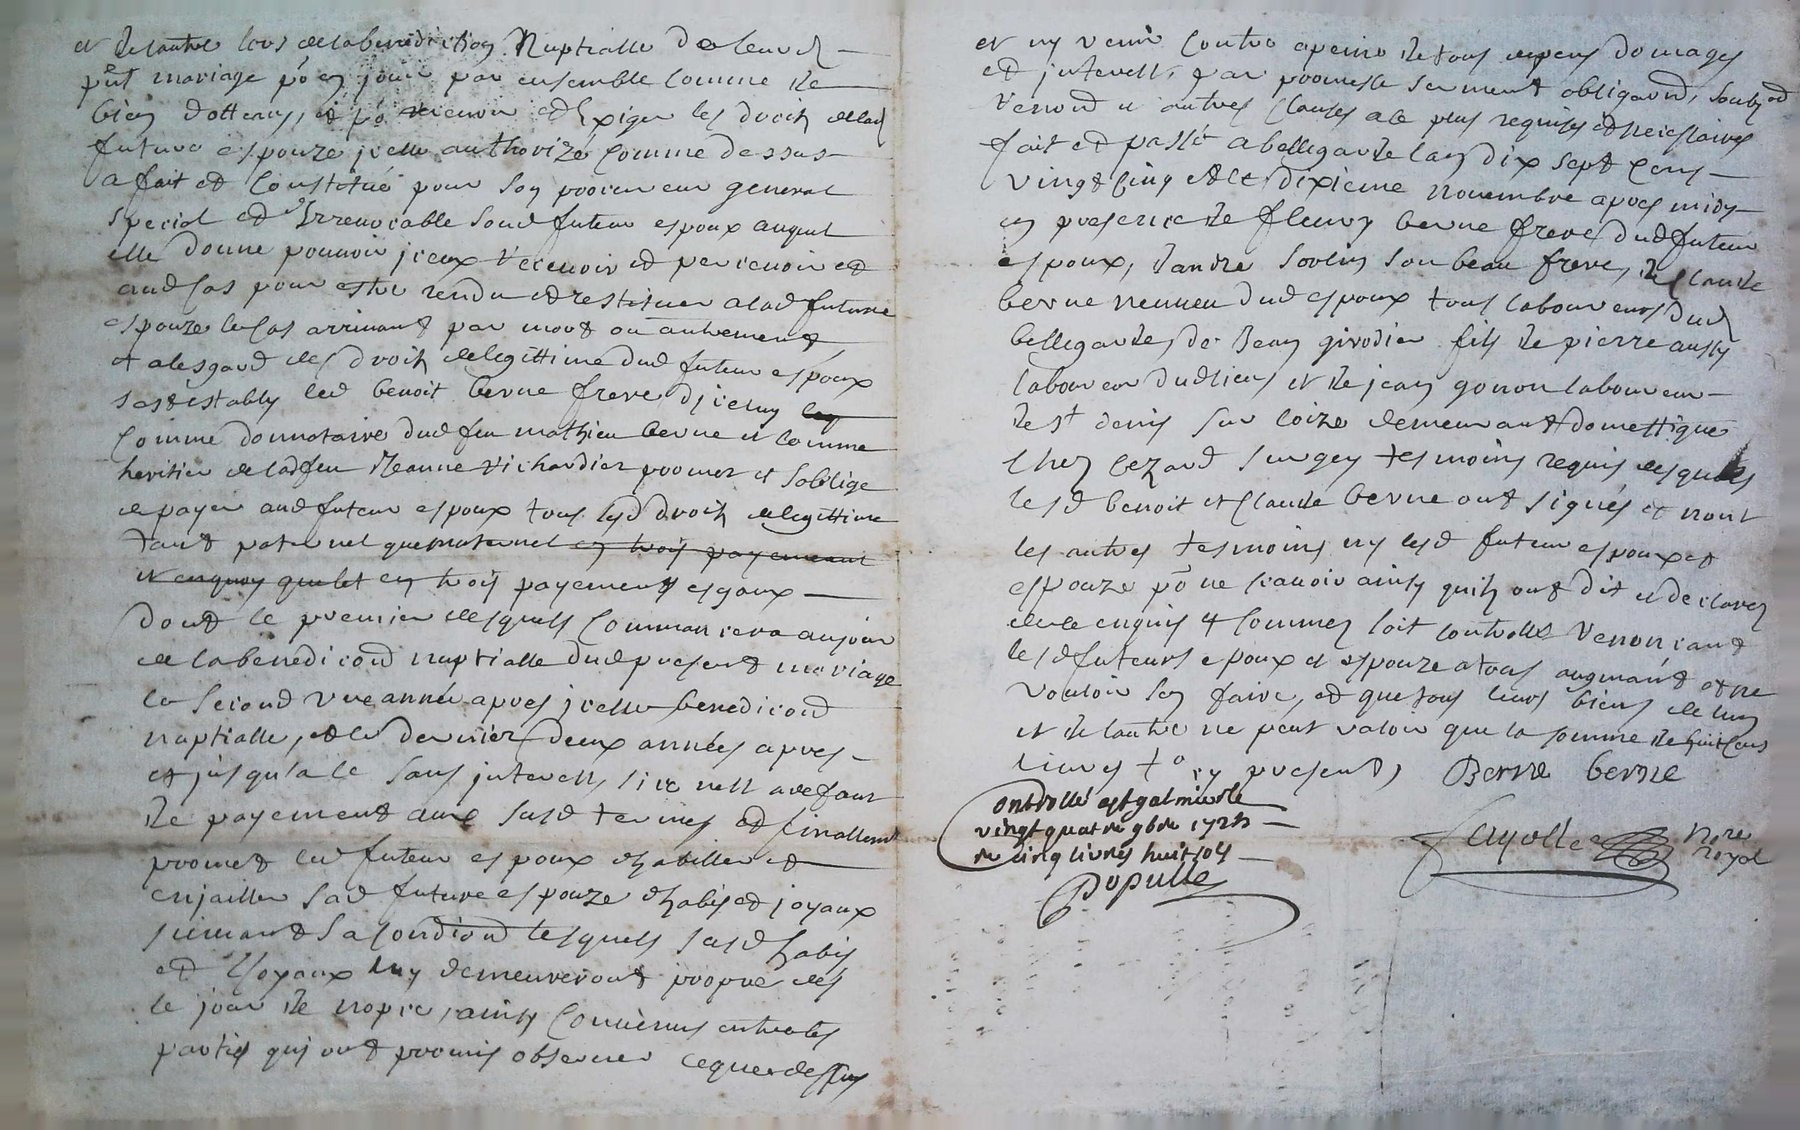 et de lautre lors de la benediction Nuptialle de leurd
pñt mariage po en jouir par ensemble comme de
bien dotteaux, et po recevoir et Exiger les droitz de lad
future espouze jcelle authorizé comme dessus
a fait et Constitué pour son procureur general
special et Irrevocable soud futeur espoux auquel
elle donne pouvoir jceux recevoir et percevoir et
aud cas pour estre rendu et restituer a lad future
espouze le cas arrivant par mort ou autrement,
et alesgard des droitz de legittime dud futeur espoux
sest estably led benoit berne frere djceluy
Comme donnataire dud feu mathieu berne et comme
heritier de lad feu Jeanne richardier promet et soblige
de payer aud futeur espoux tous lesd droitz de legittime
tant paternel que maternel en trois payement
en trois payements esgaux
dont le premier desquels Commancera aujour
de la benedicond nuptialle dud present mariage
le second une année apres jcelle benedicond
nuptialle, et le dernier deux années apres
et jusqu'a ce sans jnterest, si ce nest a defaut
de payement aux susd termes et finallemt
promet led futeur espoux dhabiller et
enjailler sad future espouze dhabis et joyaux
suivant sa condicond lesquels susd habis
et Joyaux luy demeureront propre des
le jour de nopce, ainsy Convenus entre les
parties qui ont promis observer ce que dessus
et ny venir contre a peine de tous despens domages
et jnterest, par promesse serment obligaond, soubzod
renond et autres clauses a ce plus requises et necessaires
fait et passé a bellegarde lan dix sept cens
vingt cinq et le dixieme novembre apres midy
en presence de fleury berne frere dud futeur
espoux, dandre soulin son beau frere, de claude
berne nepveu dud espoux tous laboureurs dud
bellegarde, de Jean girodier fils de pierre aussy
laboureur dudlieu et de jean gonon laboureur
de st denis sur loize demeurant domestique
chez cezard surgey tesmoins requis desquels
lesd benoit et Claude berne ont signés et nont
les autres tesmoins ny lesd futeur espoux et
espouze po ne scavoir ainsy quilz ont dit et declarez
de ce enquis et sommez soit controllé renoncant
lesd futeurs epoux et espouze a tous augmant et ne
vouloir sen faire, et que tous leurs biens de lun
et de lautre ne peut valoir que la somme de huit cens
livres to cy present, Berne berne
ontrollé a st galmier le
vingt quatre 9bre 1725
re cinq livres huit sols
Populle
Fayolle Nore
Royal